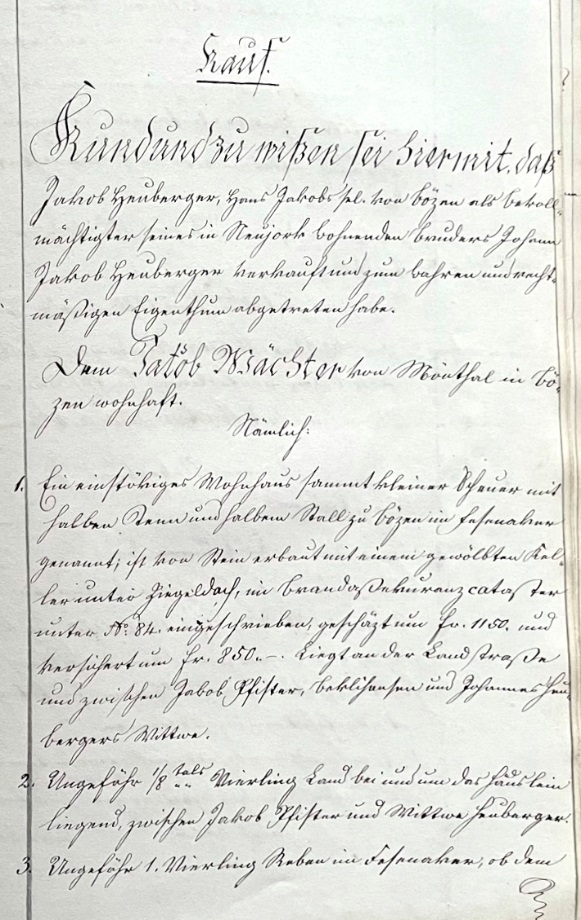 Kauf.
Kund und zu wißen sei hiermit, daß
Jakob Heuberger, Hans Jakobs sel. von Bözen als bevoll-
mächtigter seines in Neujork wohnenden Bruders Johann
Jakob Heuberger verkauft und zum wahren und recht-
mäßigen Eigenthum abgetreten habe.
Dem Jakob Wächter von Mönthal in Bö-
zen wohnhaft.
Nämlich:
1. Ein einstökiges Wohnhaus sammt kleiner Scheuer mit
halben Tenn und halbem Stall zu Bözen im Fesenaker
genannt; ist von Stein erbaut mit einem gewölbten Kel-
ler unter Ziegeldach, im Brandaßekuranzcataster
unter No. 84. eingeschrieben, geschäzt um Fr. 1150. und
versichert um Fr. 850.-. Liegt an der Landstraße
und zwischen Jakob Pfister, und Johannes Heu-
bergers Wittwe.
2. Ungefähr 1/8 tels Vierling Land bei und um das Häuslein
liegend, zwischen Jakob Pfister und Wittwe Heuberger.
3. Ungefähr 1. Vierling Reben im Fesenaker, ob dem